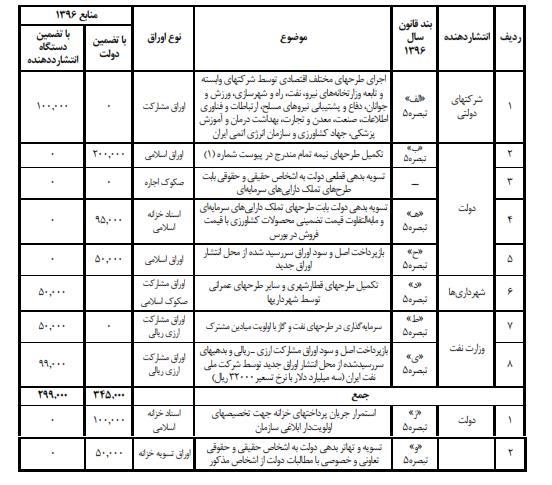 ردیف
انتشاردهنده
بند قانون
سال
۱۳۹۶
موضوع
نوع اوراق
منابع ۱۳۹۶
با تضمین
دولت
با تضمین
دستگاه
انتشاردهنده
۱
شرکتهای
دولتی
«الف»
تبصره۵
اجرای طرحهای مختلف اقتصادی توسط شرکتهای وابسته
و تابعه وزارتخانه‌های نیرو، نفت، راه و شهرسازی، ورزش و
جوانان، دفاع و پشتیبانی نیروهای مسلح، ارتباطات و فناوری
اطلاعات، صنعت، معدن و تجارت، بهداشت درمان و آموزش
پزشکی، جهاد کشاورزی و سازمان انرژی اتمی ایران
اوراق مشارکت
۰
۱۰۰,۰۰۰
۲
دولت
«ب»
تبصره۵
تکمیل طرحهای نیمه تمام مندرج در پیوست شماره (۱)
اوراق اسلامی
۲۰۰,۰۰۰
۰
۳
_
تسویه بدهی قطعی دولت به اشخاص حقیقی و حقوقی بابت
طرح‌های تملک دارایی‌های سرمایه‌ای
صکوک اجاره
۰
۰
۴
«هـ»
تبصره۵
تسویه بدهی دولت بابت طرحهای تملک دارایی‌های سرمایه‌ای
و مابه‌التفاوت قیمت تضمینی محصولات کشاورزی با قیمت
فروش در بورس
اسناد خزانه
اسلامی
۹۵,۰۰۰
۰
۵
«ح»
تبصره۵
بازپرداخت اصل و سود اوراق سررسید شده از محل انتشار
اوراق جدید
اوراق اسلامی
۵۰,۰۰۰
۰
۶
شهرداری‌ها
«د»
تبصره۵
تکمیل طرحهای قطارشهری و سایر طرحهای عمرانی
توسط شهرداریها
اوراق مشارکت
صکوک اسلامی
۵۰,۰۰۰
۷
وزارت نفت
«ط»
تبصره۵
سرمایه‌گذاری در طرحهای نفت و گاز با اولویت میادین مشترک
اوراق مشارکت
ارزی ریالی
۰
۵۰,۰۰۰
۸
«ی»
تبصره۵
بازپرداخت اصل و سود اوراق مشارکت ارزی -ریالی و بدهیهای
سررسیدشده از محل انتشار اوراق جدید توسط شرکت ملی
نفت ایران (سه میلیارد دلار با نرخ تسعیر ۳۲۰۰۰ ریال)
اوراق مشارکت
ارزی ریالی
۹۹,۰۰۰
جمع
۳۴۵,۰۰۰
۲۹۹,۰۰۰
۱
دولت
«ز»
تبصره۵
استمرار جریان پرداختهای خزانه جهت تخصیصهای
اولویت‌دار ابلاغی سازمان
اسناد خزانه
اسلامی
۱۰۰,۰۰۰
۰
۲
«و»
تبصره۵
تسویه و تهاتر بدهی دولت به اشخاص حقیقی و حقوقی
تعاونی و خصوصی با مطالبات دولت از اشخاص مذکور
اوراق تسویه خزانه
۵۰,۰۰۰
۰